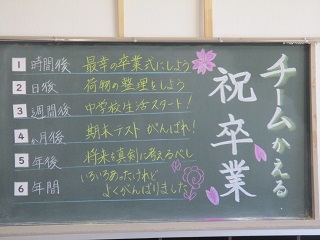 チームかえる
祝卒業
1 時間後 最幸の卒業式にしよう
2 日後 荷物の整理をしよう
3 週間後 中学校生活スタート!
4 か月後 期末テスト がんばれ!
5 年後 将来を真剣に考えるべし
6 年間 いろいろあったけれど
よくがんばりました